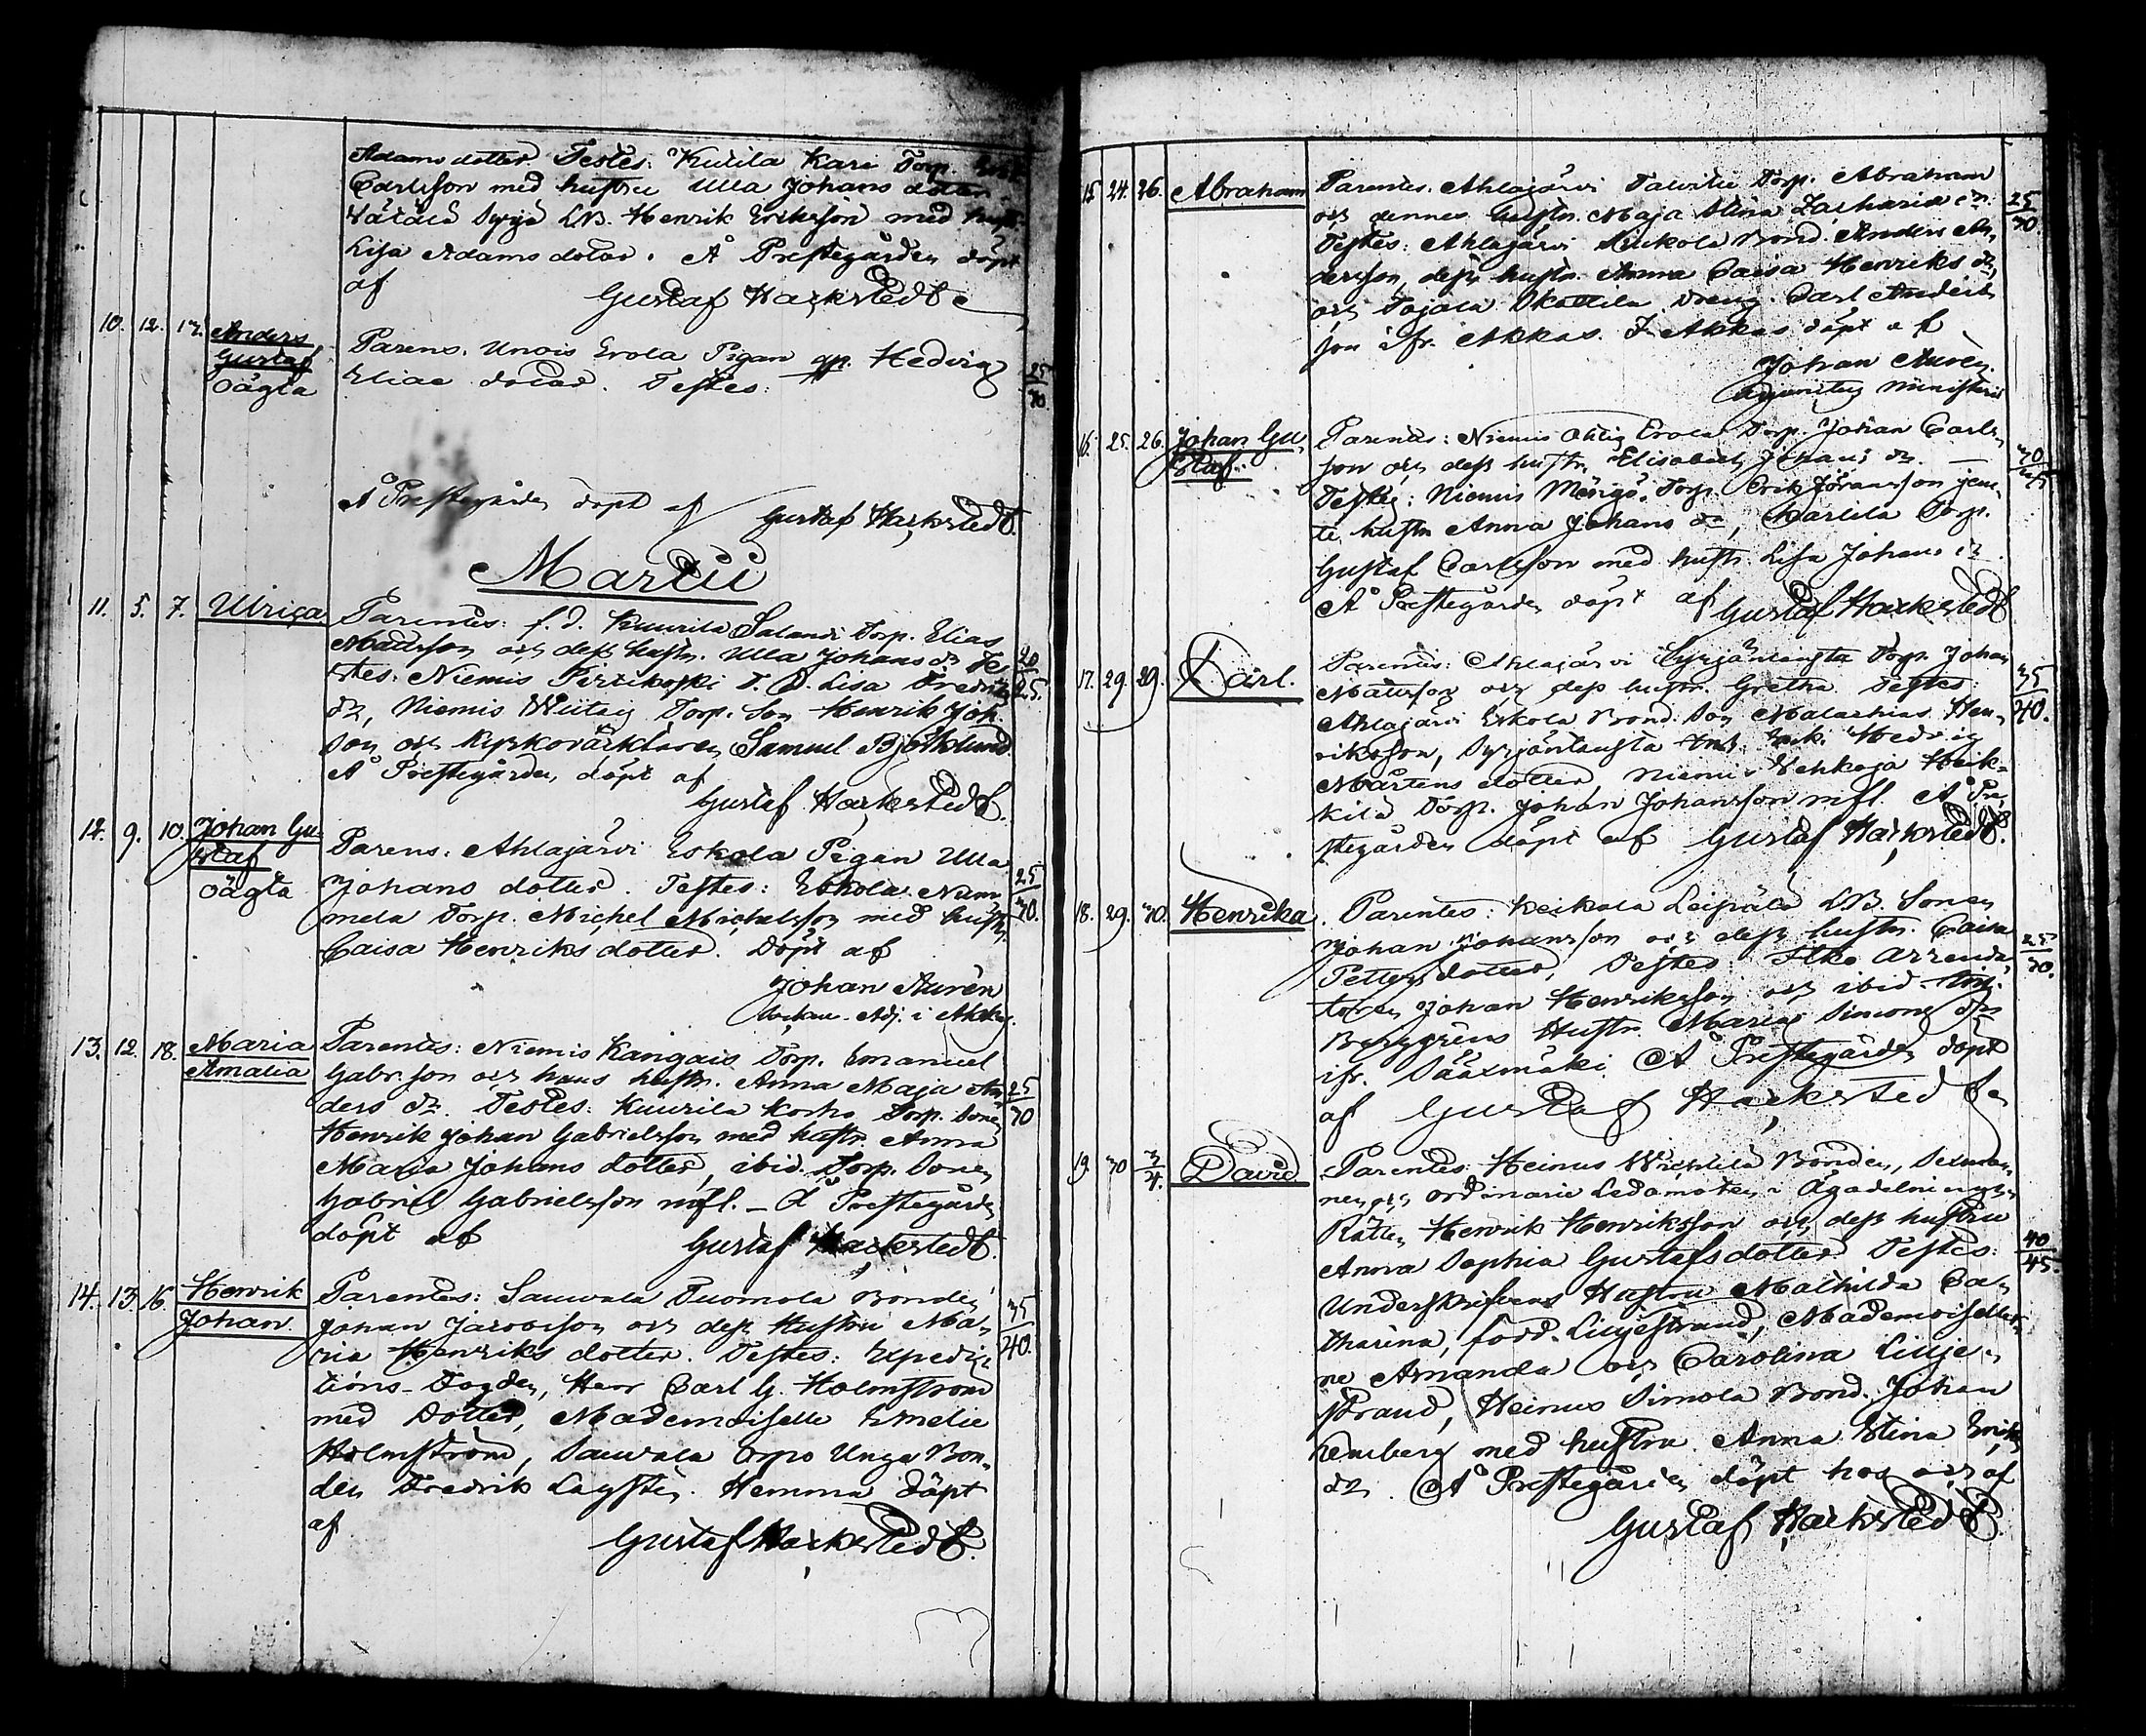 Adams dotter. Testes: Kurila Kare Torp.
Carlsson med hustru Ulla Johans dotter
LB. Henrik Eriksson med hust.
Lisa Adams dotter. Å Prestegården döpt
af Gustaf Hackstedt
10. 12. 17. Anders Gustaf oägta
Parens. Unois Erola Pigan Hedvig 25/30
Eliae dotter. Testes:
Å Prestegården döpt af Gustaf Hackstedt.
Martii
11. 5. 7. Ulrica Parentes: f.d. Kuurila Salandi Torp. Elias
Mattsson och dess hustr. Ulla Johans dr Te- 20/25.
stes: Niemis Pirtikoski T. D. Lisa Fredriks
dr, Niemis Wiitaig Torp. Son Henrik Joh.
son och Kyrkovärktaren Samuel Björklund.
Å Prestegården döpt af
Gustaf Hackstedt.
12. 9. 10. Johan Gu-
staf
oägta
Parens: Ahlajärvi Eskola Pigan Ulla
Johans dotter. Testes: Eskola Num- 25/30.
mela Torp. Michel Michelsson med hustr.
Caisa Henriks dotter. Döpt af
Johan Aurén
Adj. i Akkas.
13. 12. 18. Maria
Amalia
Parentes: Niemis Kangais Torp. Emanuel
Gabr.son och hans hustr. Anna Maja An- 25/30
ders dr. Testes: Kuurila Korho Torp. Sonen
Henrik Johan Gabrielsson med hustr. Anna
Maria Johans dotter, ibid. Torp. Sonen
Gabriel Gabrielsson mfl. – Å Prestegården
döpt af Gustaf Hackstedt.
14. 13. 16. Henrik
Johan
Parentes: Sauvala Tuomola Bonden
Johan Jacobsson och dess Hustru Ma- 35/40.
ria Henriks dotter. Testes: Expedi-
tions-Fogden, Herr Carl G. Holmström
med Dotter, Mademoiselle Emelie
Holmström, Sauvala Erpo Unga Bon-
den Fredrik Lagstén. Hemma döpt
af Gustaf Hackstedt.
15. 24. 26. Abraham Parentes. Ahlajärvi Torp. Abraham
och dennes hustr. Maja Stina Zachariae dr. 25/30
Testes: Ahlajärvi Bond. Anders An-
dersson, dess hustr. Anna Caisa Henriks dr,
och Tojala Skottila dreng. Carl Anders
son ifr. Akkas. I Akkas döpt af
Johan Aurén.
Adjunctus Ministerii
16. 25. 26. Johan Gu-
staf.
Parentes: Niemis Ohlig Erola Torp. Johan Carls-
son och dess hustr. Elisabeth Johans dr. — 40/45
Testes: Niemis Torp. Erik Jöransson jem-
te hustr. Anna Johans dr, Torp.
Gustaf Carlsson med hustr. Lisa Johans dr.
Å Prestegården döpt af Gustaf Hackstedt
17. 29. 29. Carl. Parentes: Ahlajärvi Syrjäntausta Torp. Johan
Mattsson och dess hustr. Gretha Testes: 35/40.
Ahlajärvi Eskola Bond. Son Malachias Hen-
riksson, Syrjäntausta Hedvig
Mårtens dotter, Niemis Vehkoja Heik-
kilä Torp. Johan Johansson mfl. Å Pre-
stegården döpt af Gustaf Hackstedt.
18. 29. 30. Henrika. Parentes: Keikala Leipälä LB. Sonen
Johan Johansson och dess hustr. Caisa
Petters dotter, Testes: Arrenda- 25/30.
toren Johan Henriksson och ibid
Berggréns Hustr. Maria Simons dr
ifr. Sääxmäki. Å Prestegården döpt
af Gustaf Hackstedt
19. 30 3/4. David. Parentes: Heinus Bonden, Sexman-
nen och ordinarie Ledamoten i Ägodelnings
Rätten Henrik Henriksson och dess hustru
Anna Sophia Gustafs dotter. Testes: 40/45.
Underskrifvens Hustru Mathilda Ca-
tharina, född Liljestrand, Mademoiseller-
ne Amanda och Carolina Lilje-
strand, Heinus Simola Bond. Johan
med hustru Anna Stina Eriks
dr. Å Prestegården döpt hos och af
Gustaf Hackstedt.